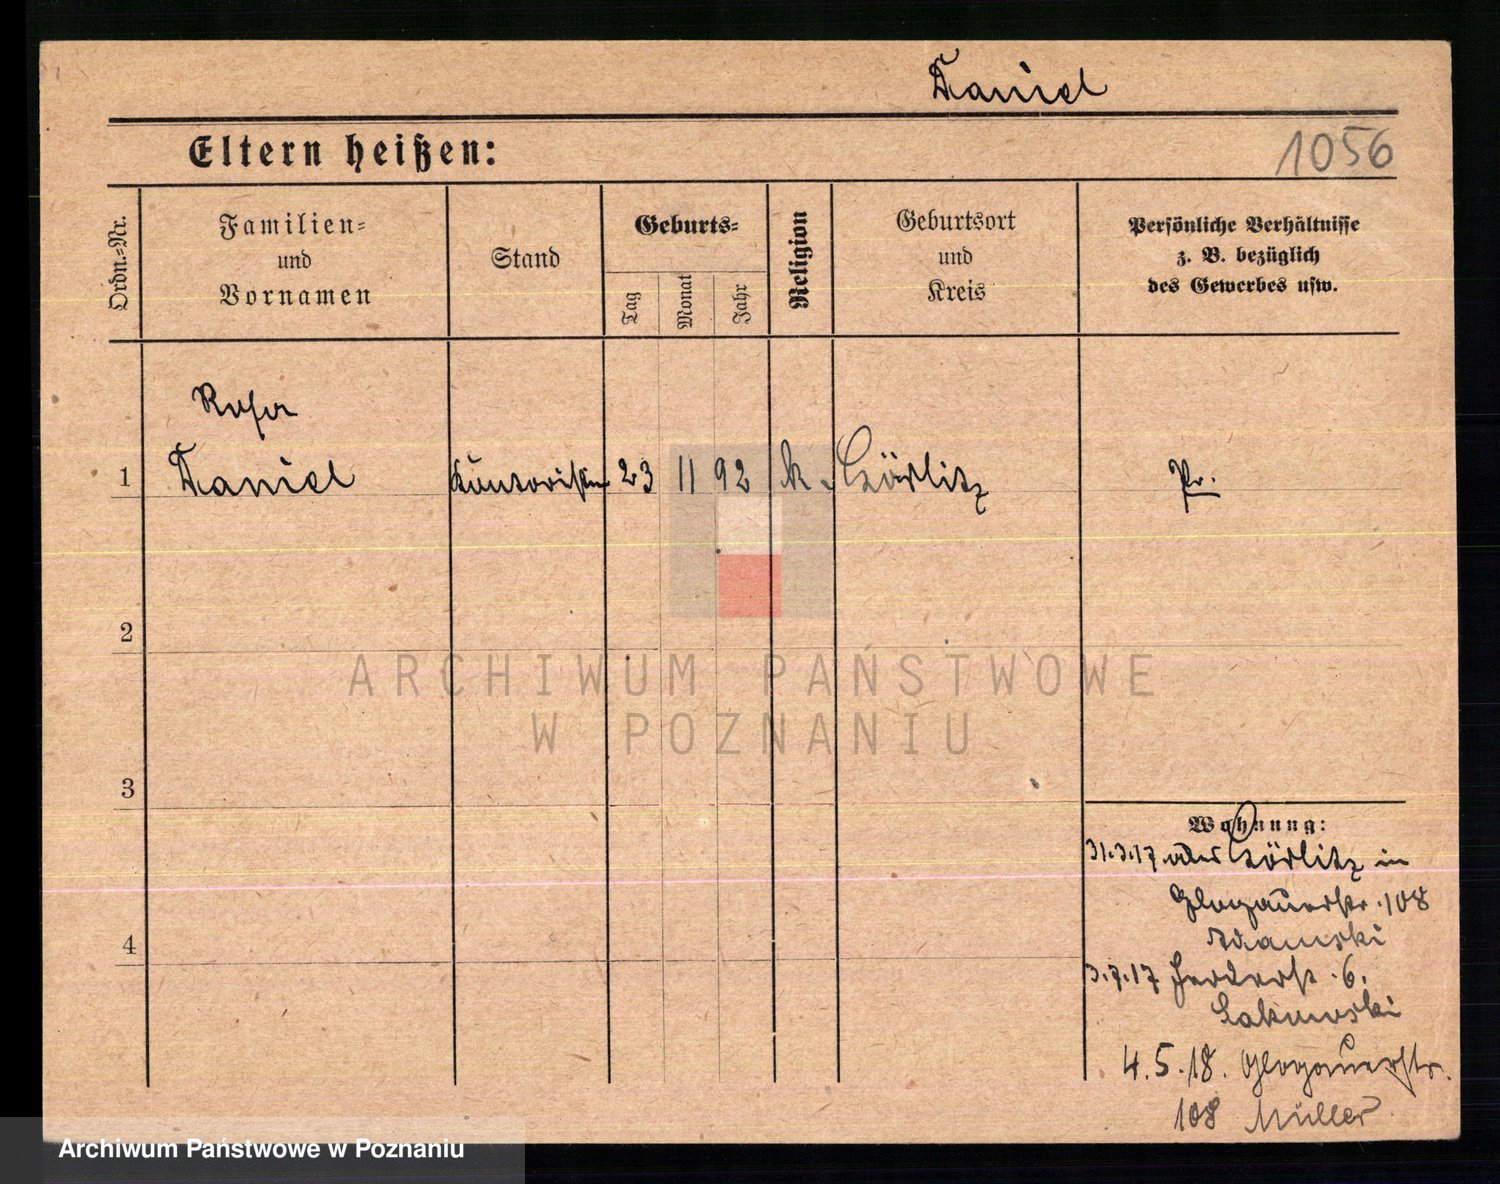 Daniel
Eltern heißen:
1056
Ordn.-Nr.
Familien-
und
Vornamen
Stand
Geburts-
Tag
Monat
Jahr
Religion
Geburtsort
und
Kreis
Persönliche Verhältnisse
z. B. bezüglich
des Gewerbes usw.
Rosa
1 Daniel Kontoristin 23 11 92 k. Görlitz Pr.
2
ARCHIWUM PAŃSTWOWE
W POZNANIU
3
Wohnung:
31.3.17 Görlitz in
Glogauerstr. 108
Adamski
3.7.17 Herderst. 6.
Lakowski
4
4.5.18. Glogauerstr.
108 Müller
Archiwum Państwowe w Poznaniu